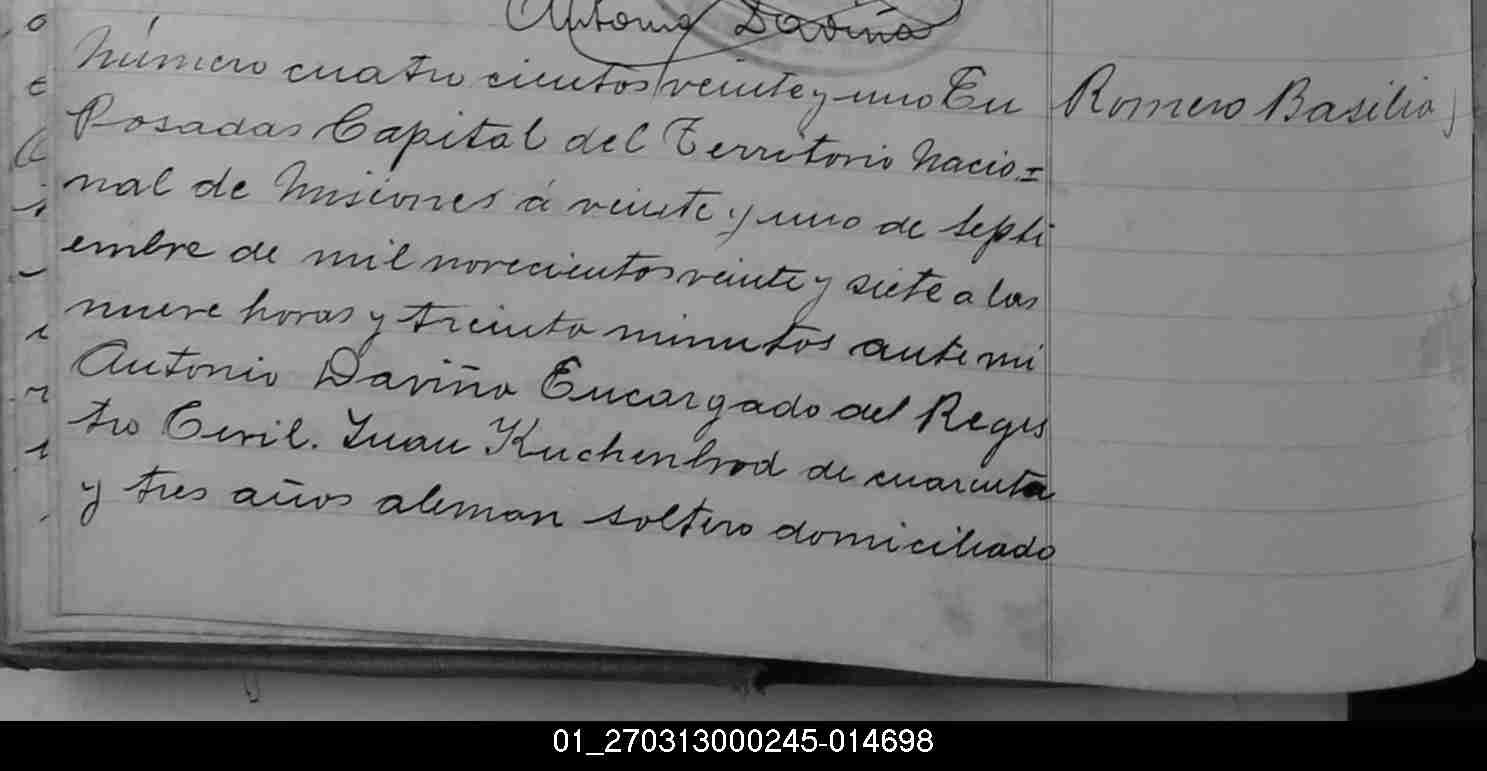 Antonio Daviña
Número cuatrocientos veinte y uno En
Romero Basilio
Posadas Capital del Territorio Nacio=
nal de Misiones á veinte y uno de Septi
embre de mil novecientos veinte y siete a las
nueve horas y treinta minutos ante mi
Antonio Daviña Encargado del Regis
tro Civil. Juan Kuchenbrod de cuarenta
y tres años aleman soltero domiciliado
01_270313000245-014698